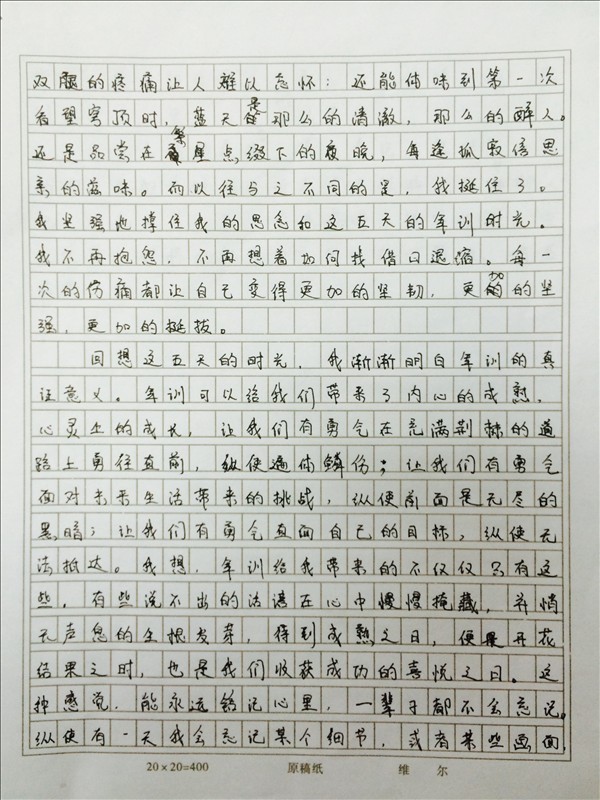 双腿的疼痛让人难以忘怀；还能体味到第一次
看望穹顶时，蓝天是那么的清澈，那么的醉人。
还是品尝在繁星点缀下的夜晚，每逢孤寂倍思
亲的滋味。而以往与之不同的是，我挺住了。
我坚强地撑住我的思念和这五天的军训时光。
我不再抱怨，不再想着如何找借口退缩。每一
次的伤痛都让自己变得更加的坚韧，更加的坚
强，更加的挺拔。
回想这五天的时光，我渐渐明白军训的真
证意义。军训可以给我们带来了内心的成熟，
心灵上的成长，让我们有勇气在充满荆棘的道
路上勇往直前，纵使遍体鳞伤；让我们有勇气
面对未来生活带来的挑战，纵使前面是无尽的
黑暗；让我们有勇气直面自己的目标，纵使无
法抵达。我想，军训给我带来的不仅仅只有这
些，有些说不出的话语在心中慢慢掩藏，并悄
无声息的生根发芽，待到成熟之日，便是开花
结果之时，也是我们收获成功的喜悦之日。这
种感觉，能永远铭记心里，一辈子都不会忘记。
纵使有一天我会忘记某个细节，或者某些画面，
20×20=400 原稿纸 维 尔